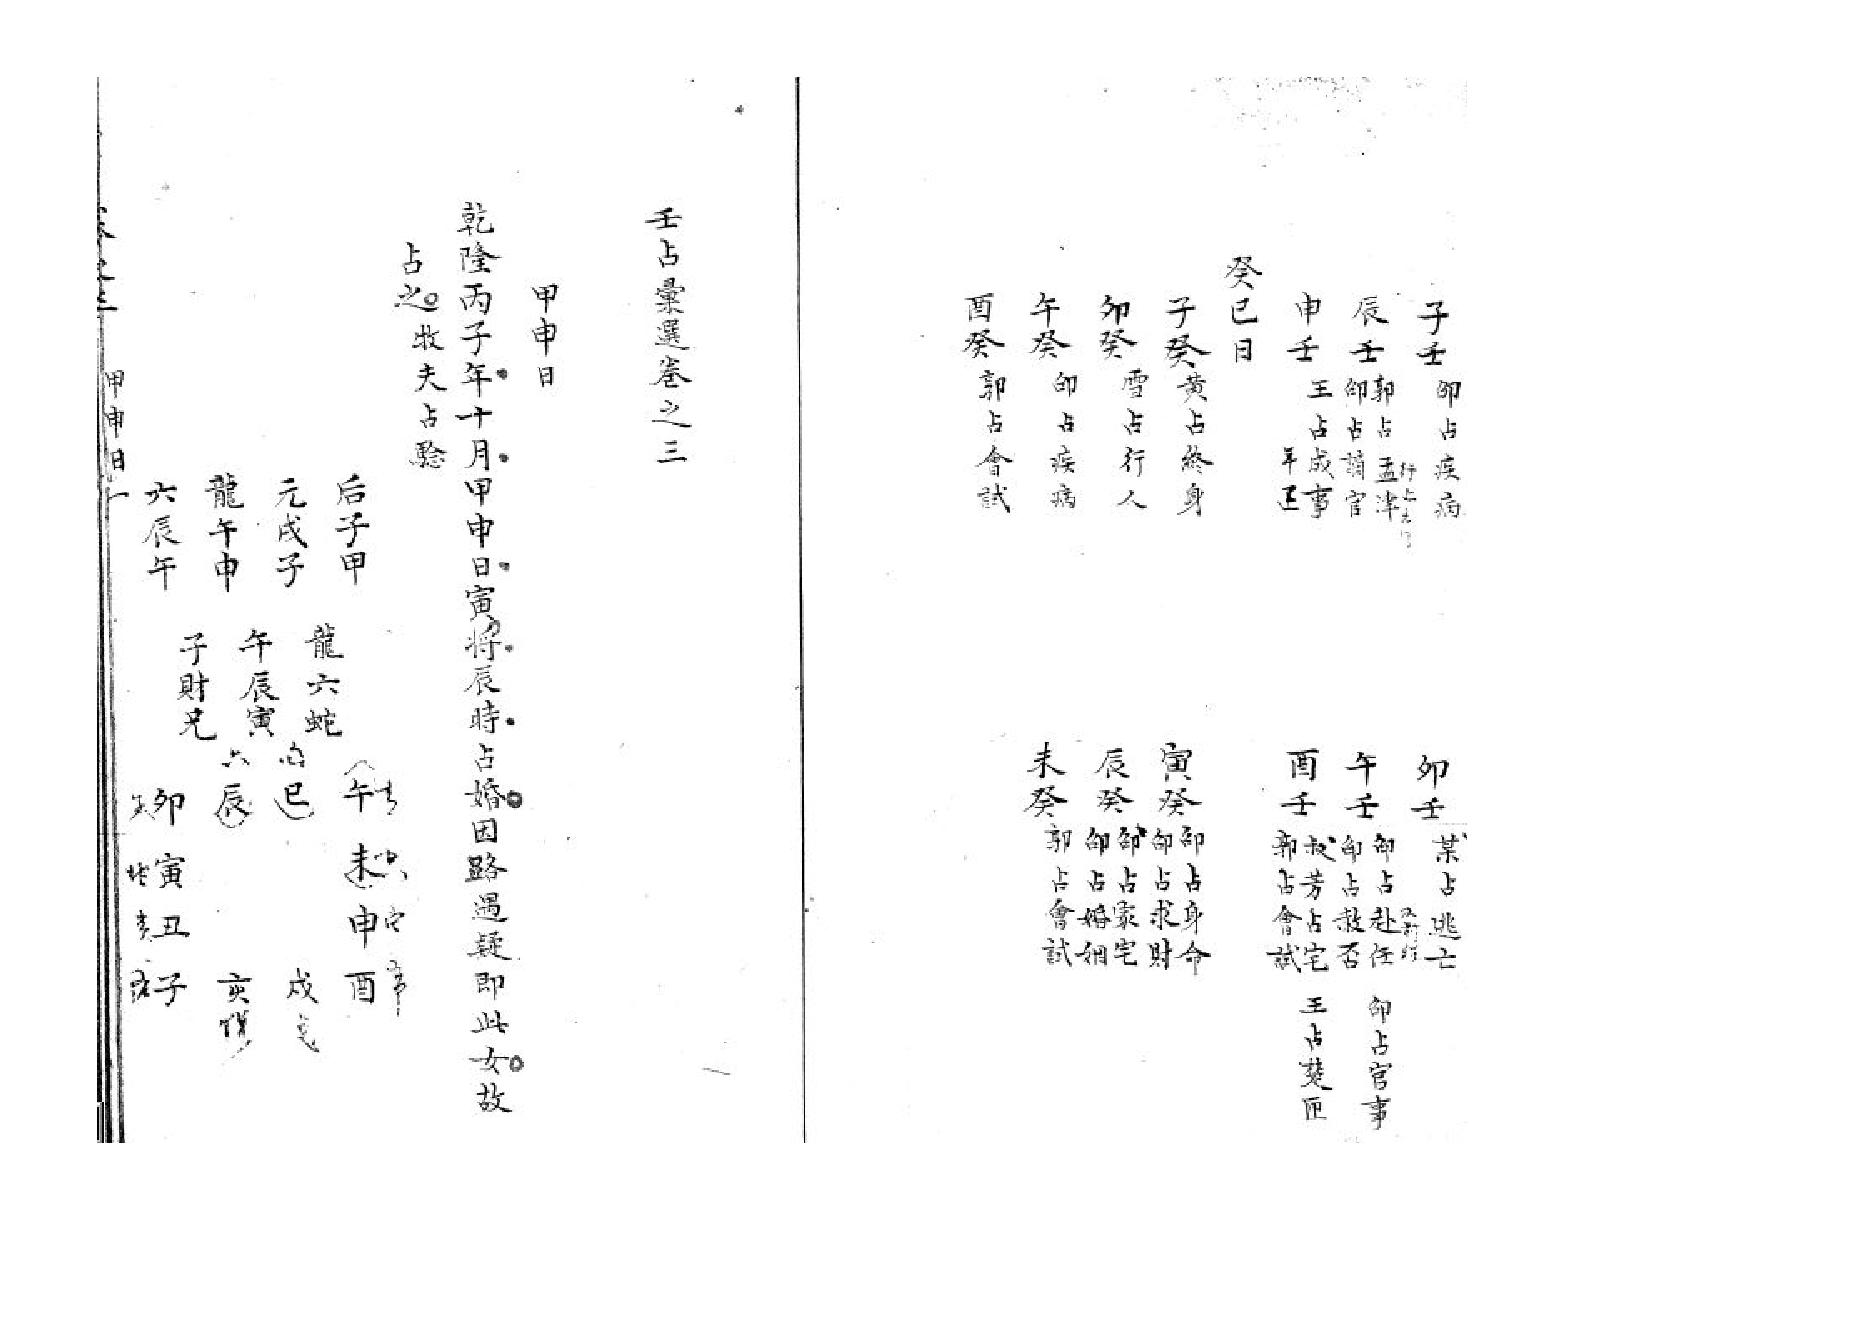 子壬 邵占疾病
卯壬 某占逃亡
辰壬 郭占孟津 邵占謫官
午壬 邵占赴任 邵占官事 邵占救否
申壬 王占成事
酉壬 叔芳占宅 王占楚匝 郭占會試
癸巳日
子癸 黃占終身
寅癸 邵占身命 邵占求財
卯癸 雪占行人
辰癸 邵占家宅 邵占婚姻
午癸 邵占疾病
未癸 郭占會試
酉癸 郭占會試
壬占彙選卷之三
甲申日
乾隆丙子年十月甲申日寅將辰時占婚因路遇疑即此女故
占之 牧夫占驗
后子甲
元戌子
龍午申
六辰午
龍六蛇
午辰寅
子財兄
午未申酉
巳 戌
六辰 亥
卯寅丑子
甲申日 一